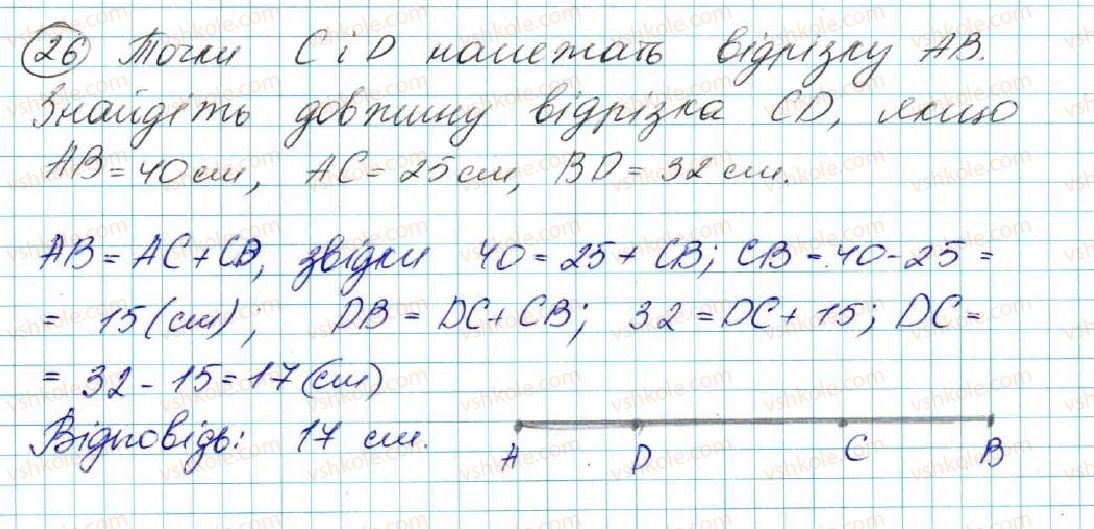 26 Точки C і D належать відрізку AB.
Знайдіть довжину відрізка CD, якщо
AB = 40 см, AC = 25 см, BD = 32 см.
AB = AC + CB, звідки 40 = 25 + CB; CB = 40 - 25 =
= 15 (см); DB = DC + CB; 32 = DC + 15; DC =
= 32 - 15 = 17 (см)
Відповідь: 17 см.
A D C B